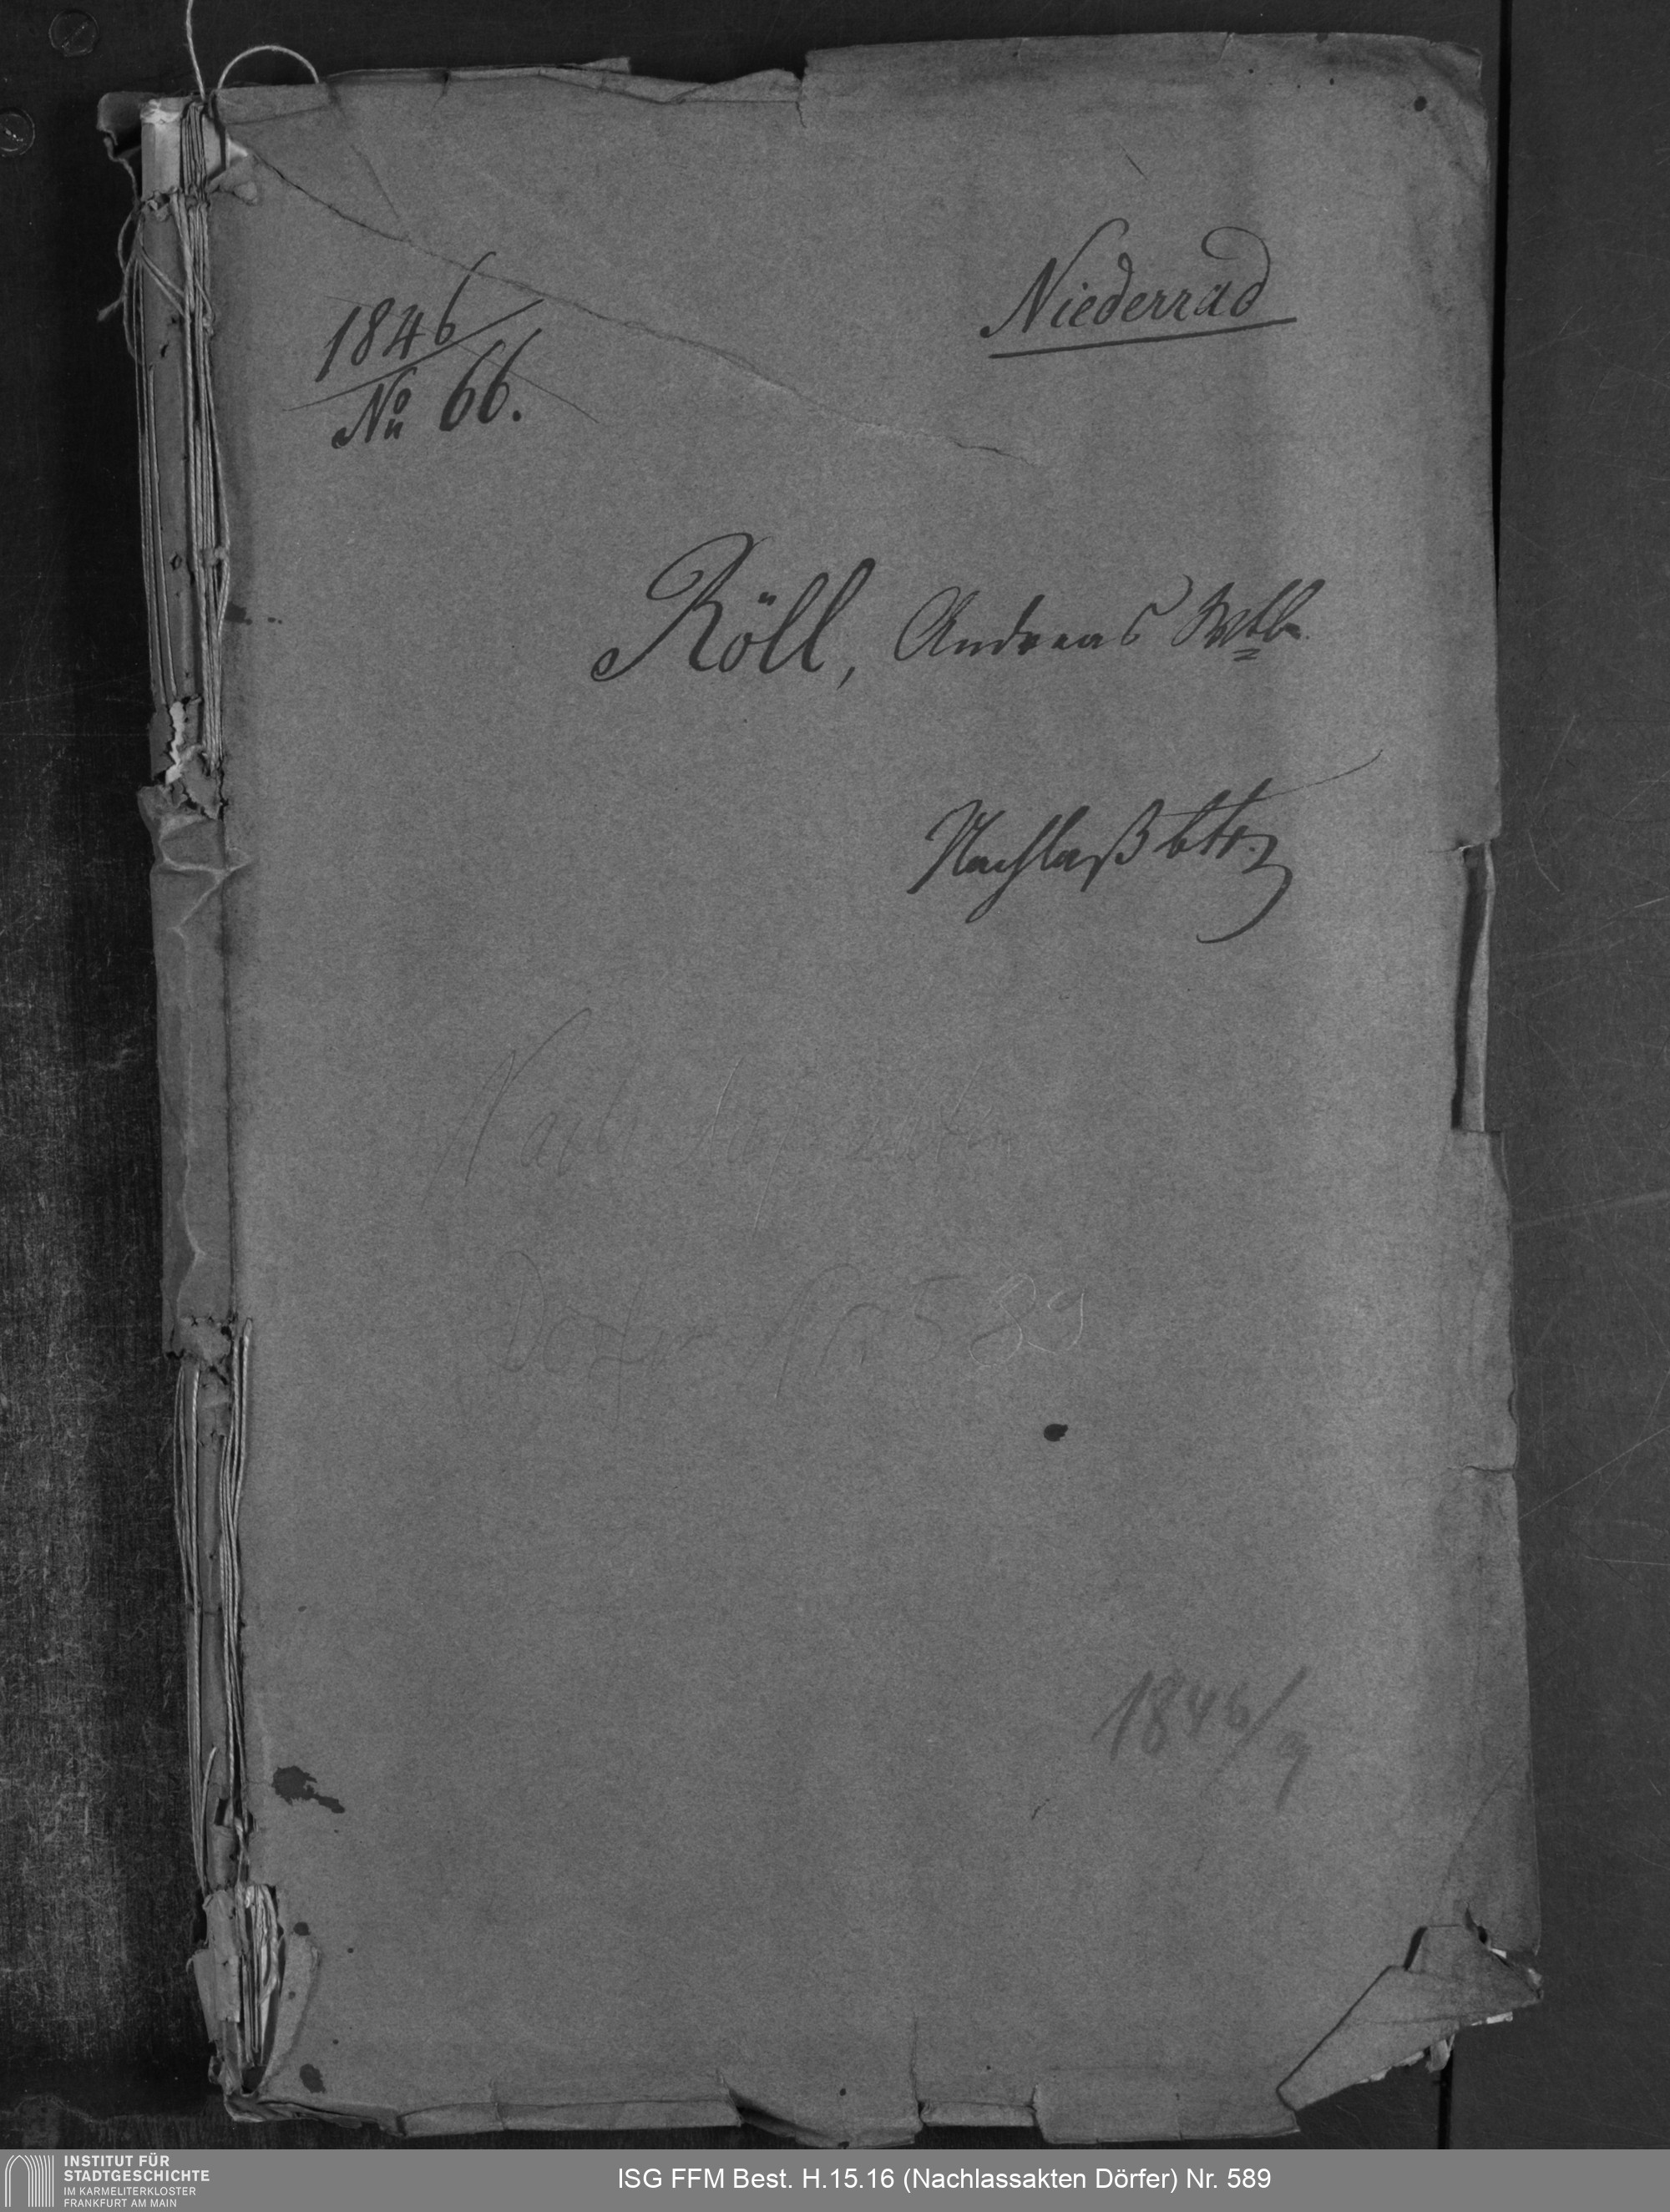 Niederrad
1846
No 66.
Röll, Andreas Wtb.
Nachlaß btr.
Nachlaßakten
Dörfer Nr. 589
1846/9
INSTITUT FÜR
STADTGESCHICHTE
IM KARMELITERKLOSTER
FRANKFURT AM MAIN
ISG FFM Best. H.15.16 (Nachlassakten Dörfer) Nr. 589